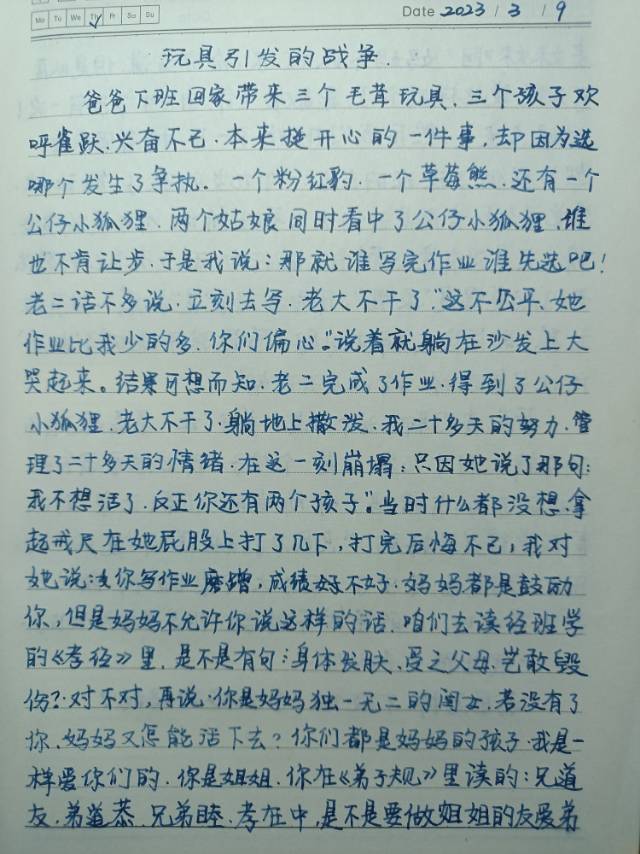 Mo Tu We Th Fr Sa Su
Date 2023 / 3 / 9
玩具引发的战争.
爸爸下班回家带来三个毛茸玩具.三个孩子欢
呼雀跃.兴奋不已.本来挺开心的一件事.却因为选
哪个发生了争执。一个粉红豹.一个草莓熊.还有一个
公仔小狐狸.两个姑娘同时看中了公仔小狐狸.谁
也不肯让步.于是我说:那就谁写完作业谁先选吧!
老二话不多说.立刻去写.老大不干了."这不公平、她
作业比我少的多.你们偏心."说着就躺在沙发上大
哭起来。结果可想而知.老二完成了作业.得到了公仔
小狐狸.老大不干了.躺地上撒泼.我二十多天的努力.管
理了二十多天的情绪.在这一刻崩塌;只因她说了那句:
我不想活了.反正你还有两个孩子".当时什么都没想.拿
起戒尺在她屁股上打了几下,打完后悔不已,我对
她说:女你写作业磨蹭,成绩好不好.妈妈都是鼓励
你,但是妈妈不允许你说这样的话.咱们去读经班学
的《孝经》里.是不是有句:身体发肤、受之父母.岂敢毁
伤?.对不对,再说.你是妈妈独一无二的闺女.若没有了
你、妈妈又怎能活下去?你们都是妈妈的孩子.我是一
样爱你们的.你是姐姐.你在《弟子规》里读的:兄道
友.弟道恭.兄弟睦.孝在中,是不是要做姐姐的友爱弟